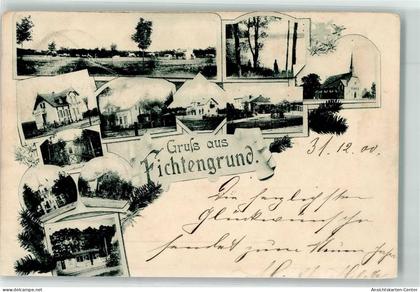 Gruß aus
Fichtengrund.
31.12.00.
Die herzlichsten
Glückwünsche
sendet zum Neuen Jahre
www.ansichtskartenversand.com
Ansichtskarten-Center